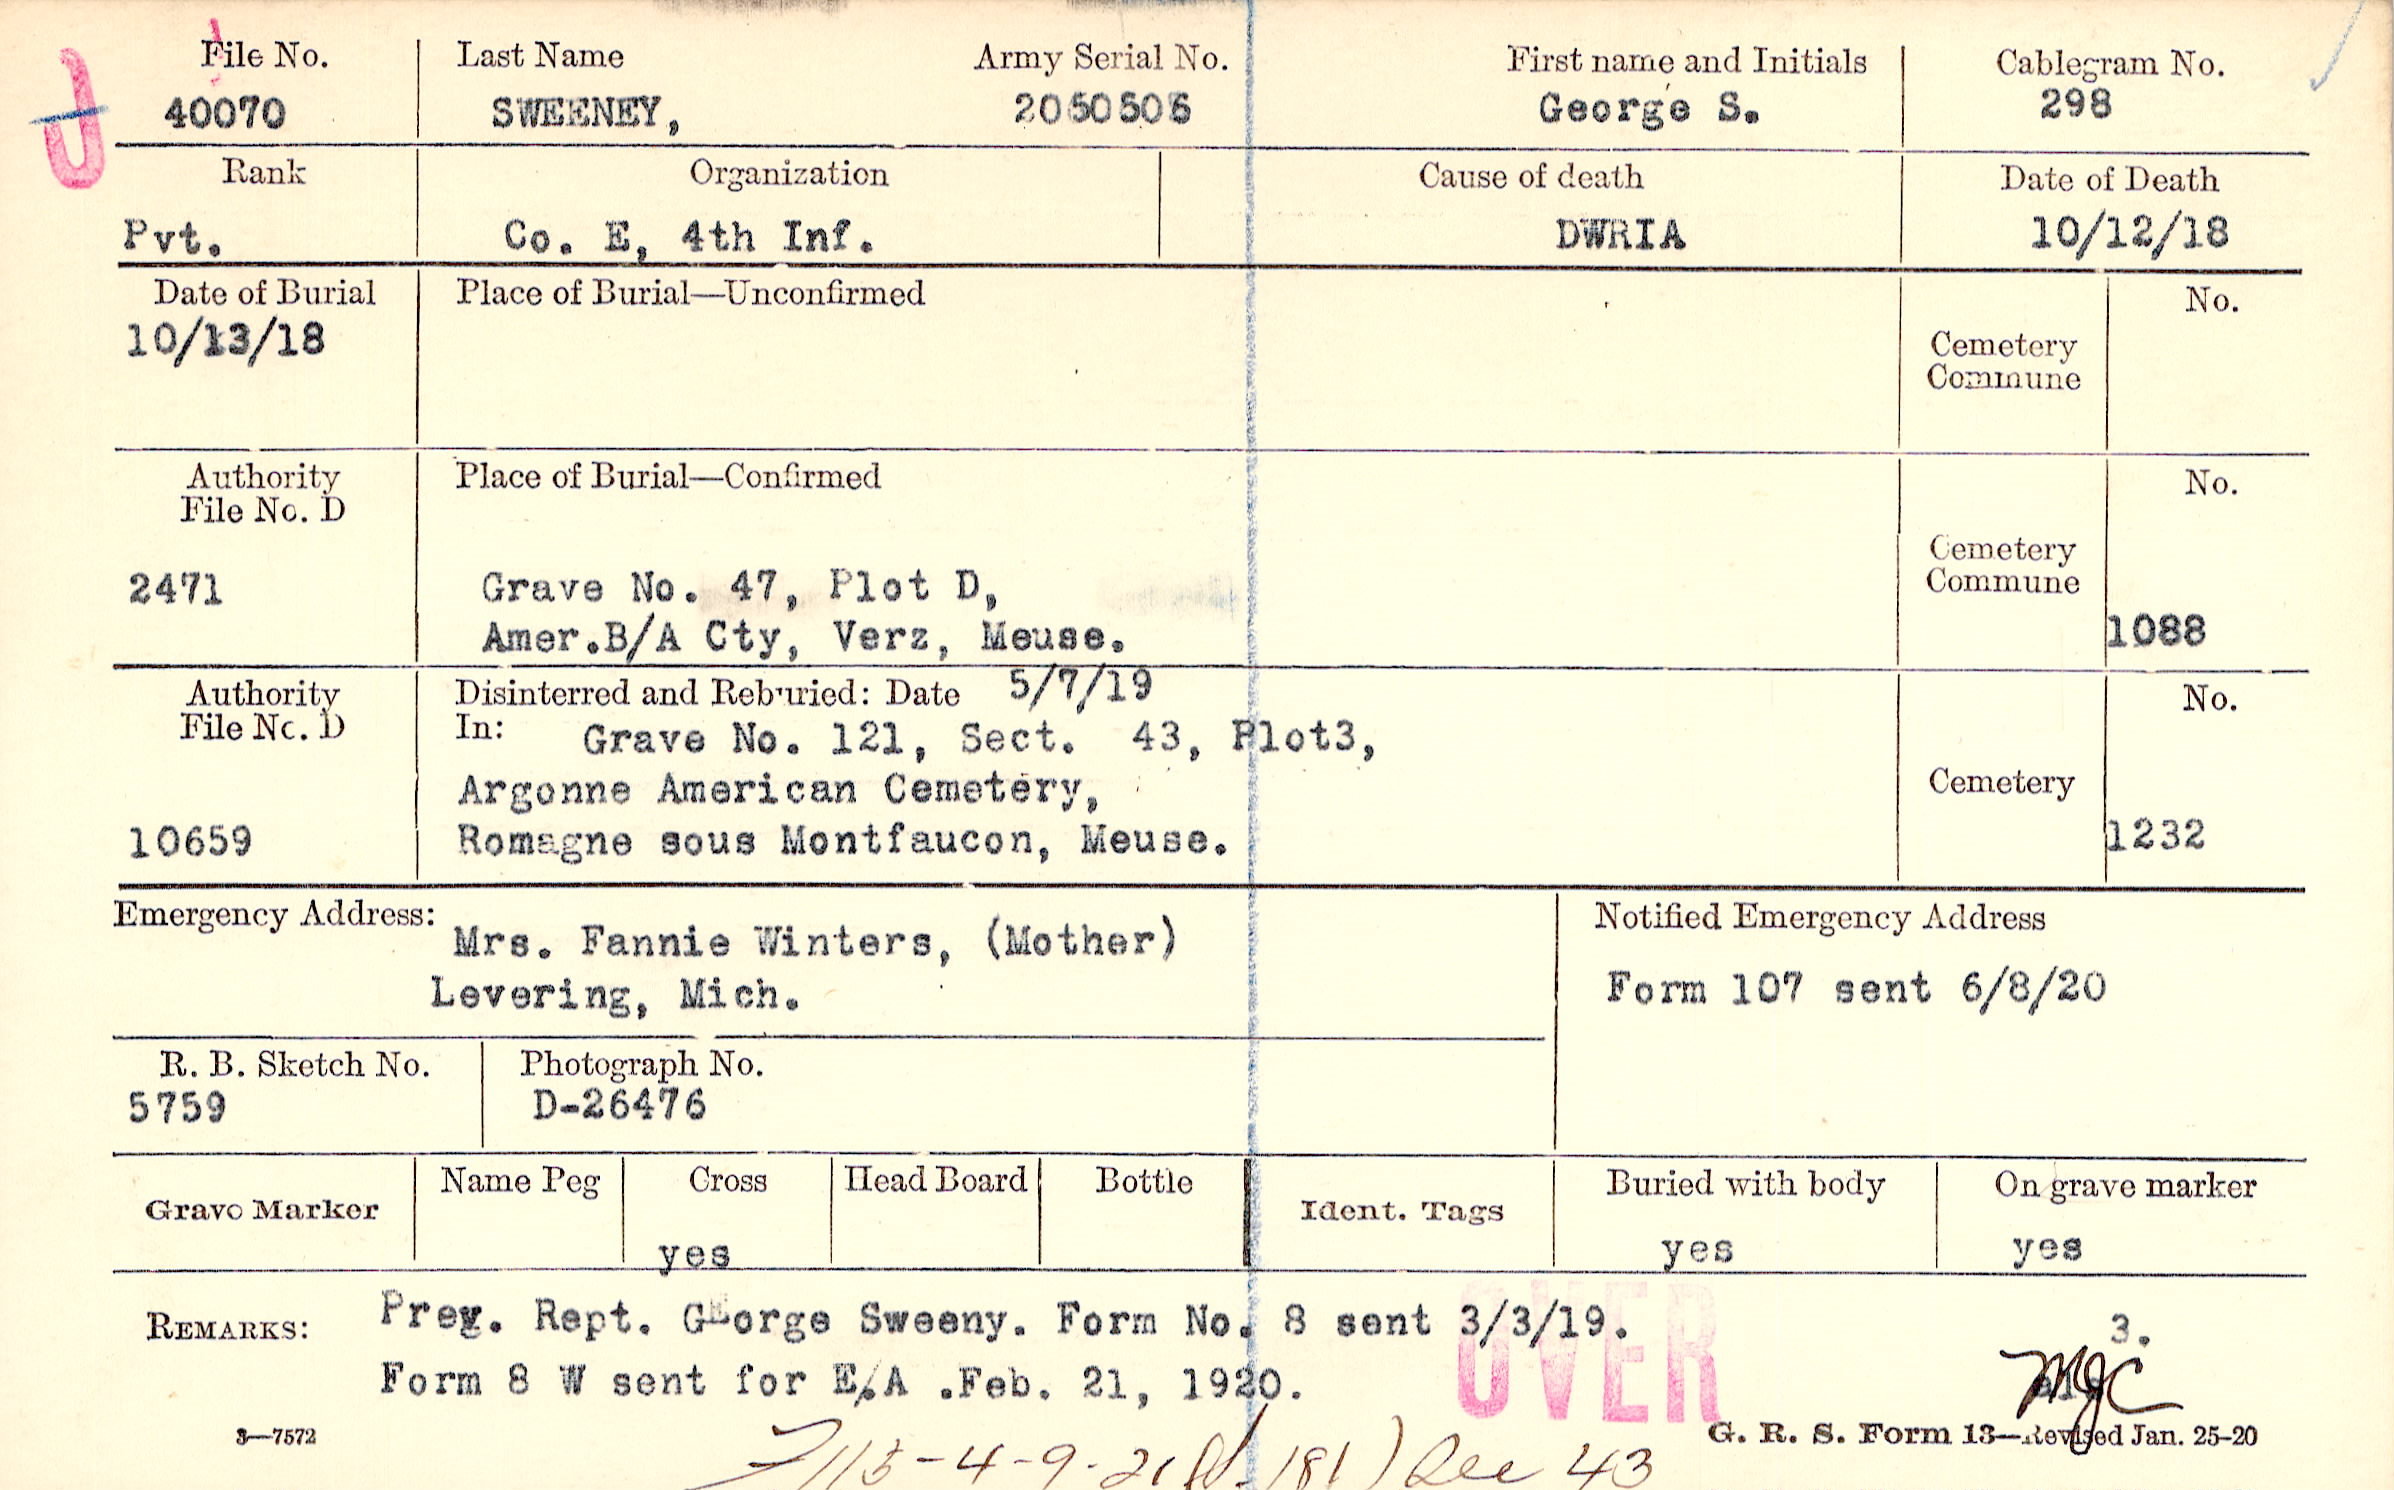 File No. Last Name Army Serial No. First name and Initials Cablegram No.
40070 SWEENEY, 2050505 George S. 298
Rank Organization Cause of death Date of Death
Pvt. Co. E, 4th Inf. DWRIA 10/12/18
Date of Burial Place of Burial—Unconfirmed No.
10/13/18
Cemetery
Commune
Authority Place of Burial—Confirmed No.
File No. D
Cemetery
Commune
2471 Grave No. 47, Plot D,
Amer.B/A Cty, Verz, Meuse. 1088
Authority Disinterred and Reburied: Date 5/7/19 No.
File No. D In: Grave No. 121, Sect. 43, Plot3,
Argonne American Cemetery, Cemetery
10659 Romagne sous Montfaucon, Meuse. 1232
Emergency Address: Notified Emergency Address
Mrs. Fannie Winters, (Mother)
Levering, Mich. Form 107 sent 6/8/20
R. B. Sketch No. Photograph No.
5759 D-26476
Grave Marker Name Peg Cross Head Board Bottle Ident. Tags Buried with body On grave marker
yes yes yes
REMARKS: Prev. Rept. GEorge Sweeny. Form No. 8 sent 3/3/19. 3.
Form 8 W sent for E.A .Feb. 21, 1920. MJC
OVER
3—7572 G. R. S. Form 13—Revised Jan. 25-20
115-4-9-21 181) Sec 43